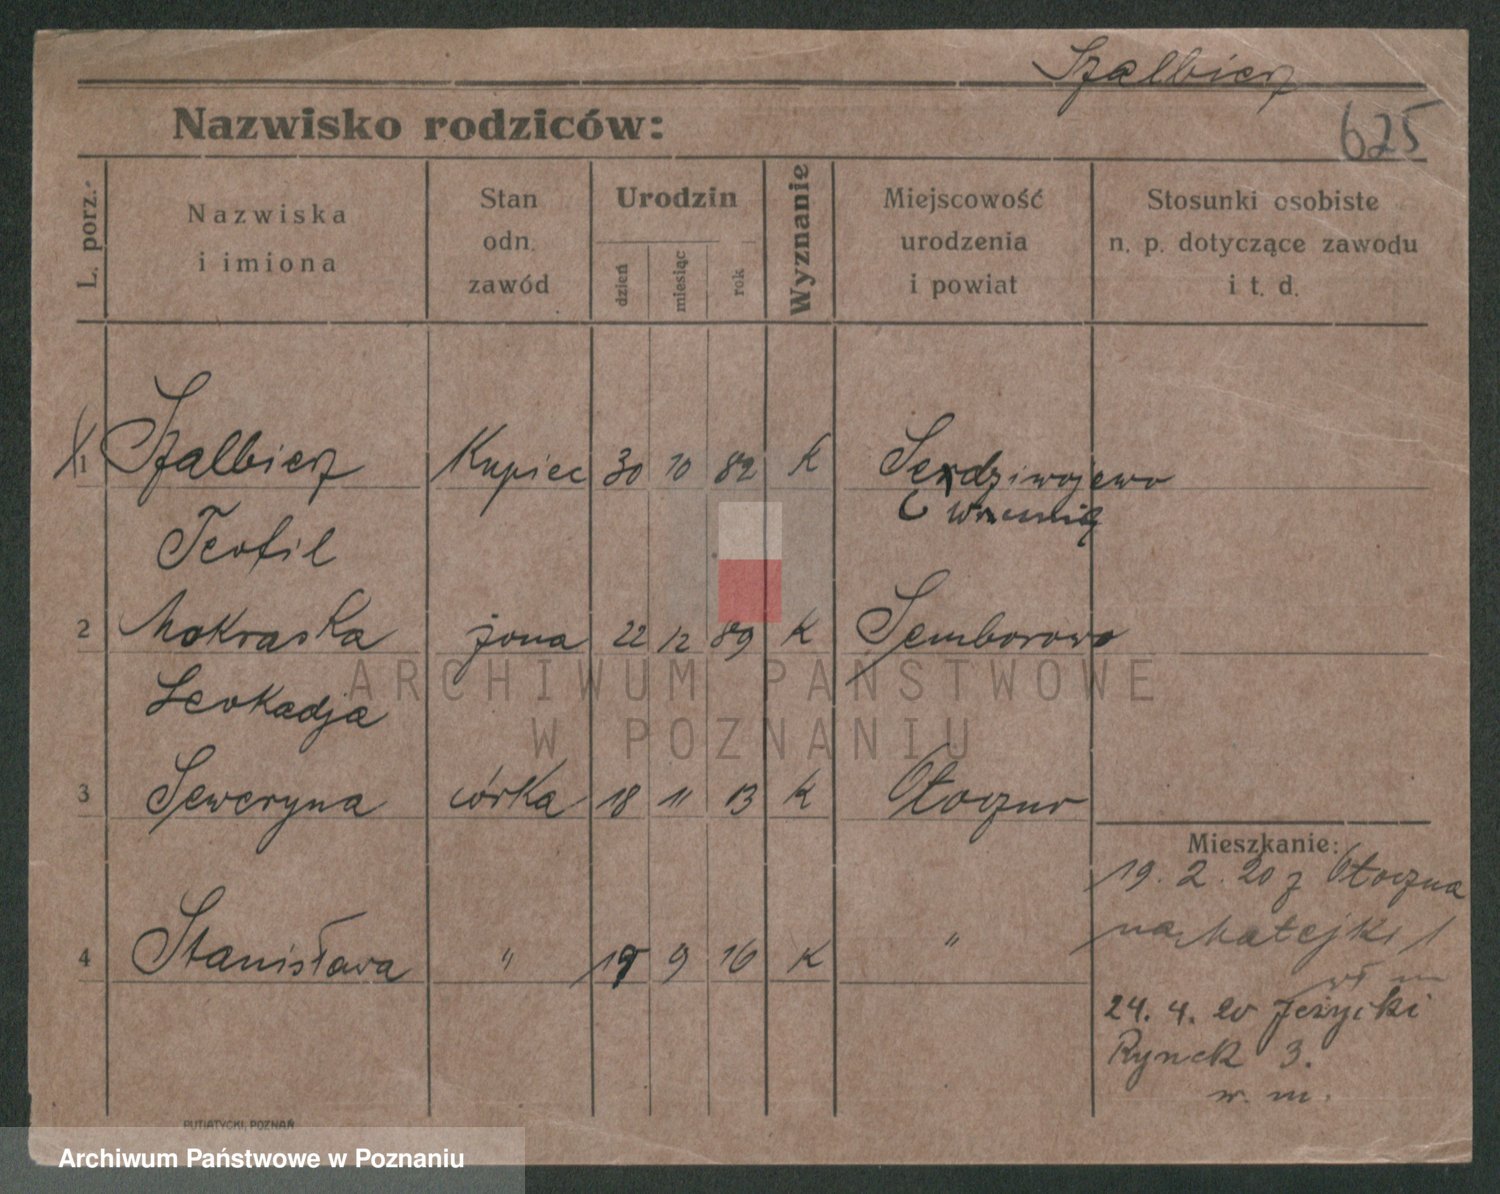 Szalbierz
Nazwisko rodziców:
625
L. porz.
Nazwiska
i imiona
Stan
odn.
zawód
Urodzin
dzień
miesiąc
rok
Wyznanie
Miejscowość
urodzenia
i powiat
Stosunki osobiste
n. p. dotyczące zawodu
i t. d.
1 Szalbierz Kupiec 30 10 82 K Sendziwojewo
Teofil
2 Mokraska żona 22 12 89 K Semborowo
Leokadja
3 Seweryna córka 18 11 13 K Otoczno
4 Stanisława " 19 9 16 K "
Mieszkanie:
19. 2. 20 z Otoczna
na Matejki 1
24. 4. 20 Jeżycki
Rynek 3.
w. m.
PUTIATYCKI, POZNAŃ
ARCHIWUM PAŃSTWOWE
W POZNANIU
Archiwum Państwowe w Poznaniu